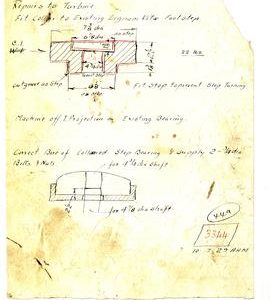 Repairs to Turbine
Fit Collar to Existing Lignum Vitae Footstep
7 7/8 dia
6 7/8 dia
as Step
C.I.
4 1/8 dia
outground as Step
Fit Stop to prevent Step Turning
Machine off 1 Projection on Existing Bearing.
Correct Bore of Collared Step Bearing & Supply 2 - 3/4 dia
Bolts & Nuts
for 4 7/8 dia Shaft
for 4 7/8 dia Shaft
449
3344
10.7.29 AHM